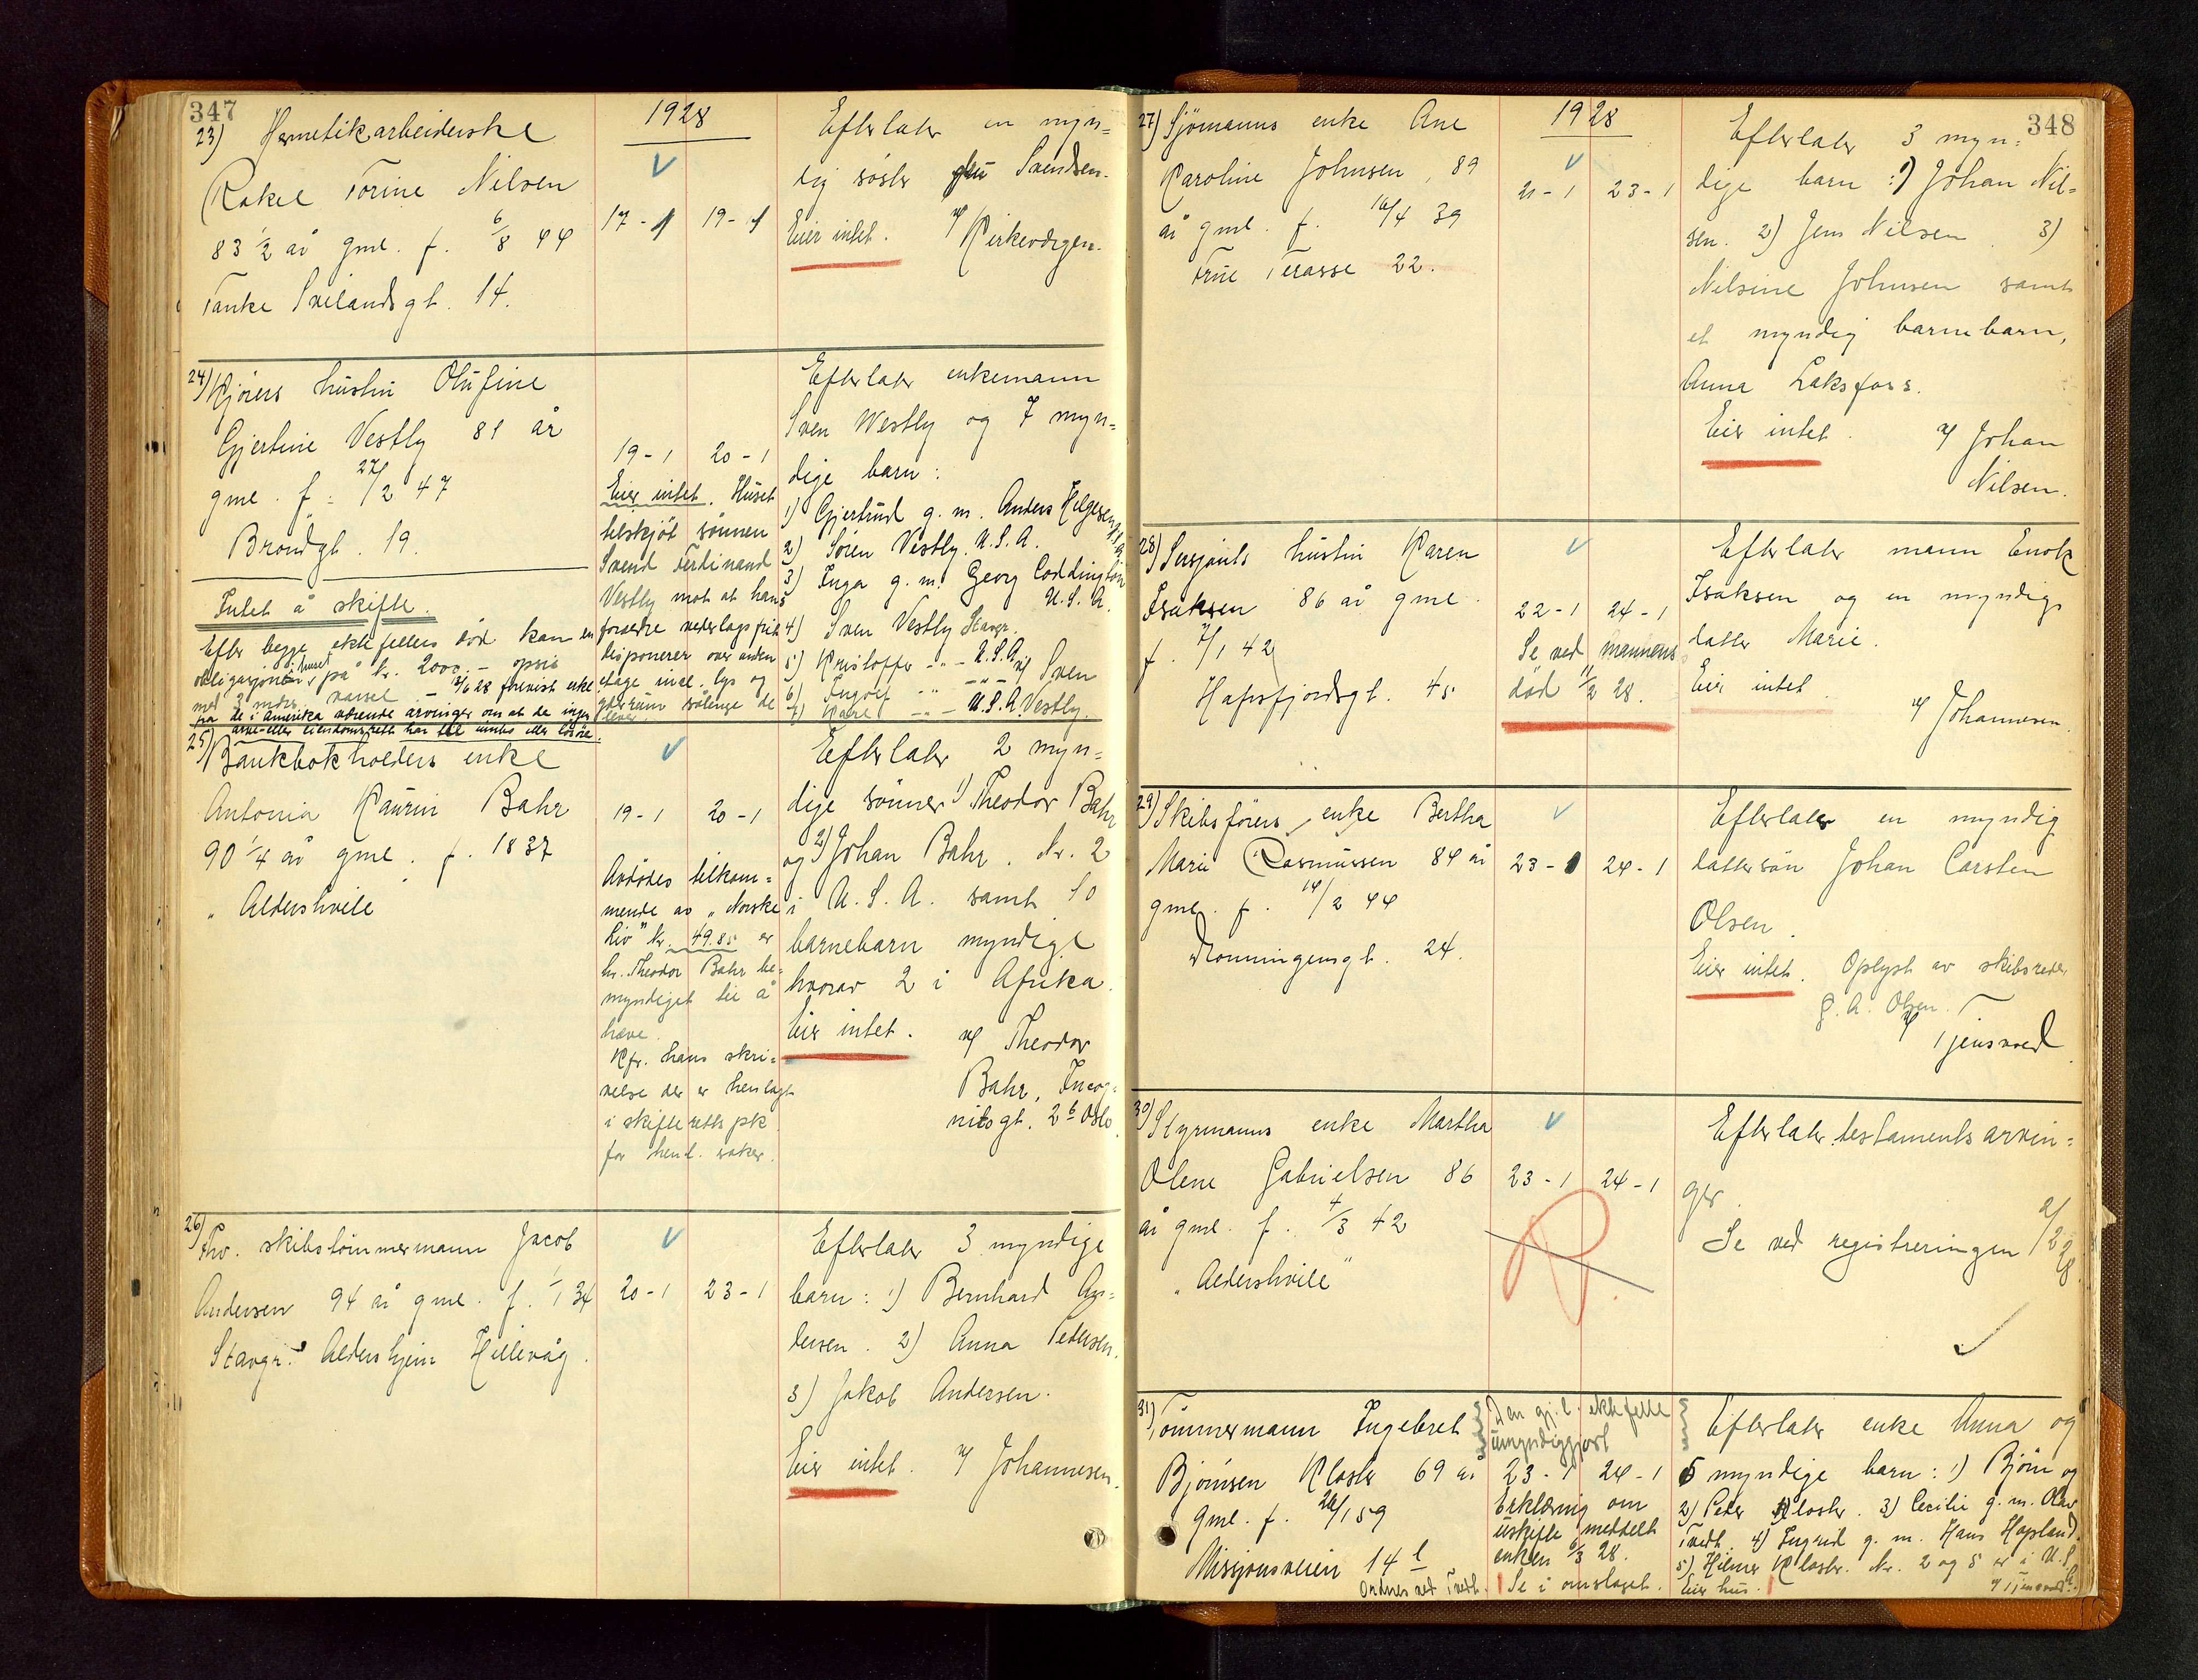 347
23) Hermetikarbeiderske
Rakel Torine Nilsen
83 1/2 år gml. f. 6/8 44
Tanke Svilandsgt. 14.
1928
17-1 19-1
Efterlater en myn=
dig søster Svendsen.
Eier intet. v/ Kirkevergen.
24) Kjörers hustru Olufine
Gjertine Vestly 81 år
gml. f. 27/2 47
Brøndgt. 19.
Intet å skifte.
Efter begge ektefellers död kan en
obligasjon i huset på kr. 2000.- opsies
med 3 mdrs. varsel. -
på de i Amerika værende arvinger om at de ingen
arve- eller eiendomsrett har til
19-1 20-1
Eier intet. Huset
tilskjöt sönnen
Svend Ferdinand
Vestly mot at hans
foreldre vederlagsfritt
disponerer over anden
etage incl. lys og
sålenge de
lever.
Efterlater enkemann
Sven Westly og 7 myn=
dige barn:
1) Gjertrud g. m. Anders Helgesen
2) Sören Vestly. U.S.A.
3) Inga g. m. Georg Coddington
U.S.A.
4) Sven Vestly Stavgr.
5) Kristoffer -"- U.S.A.
6) Ingolf -"- -"-
7) Kåre -"- U.S.A.
v/ Sven
Vestly.
25) Bankbokholders enke
Antonia Kaurin Bahr
90 1/4 år gml. f. 1837
"Aldershvile"
19-1 20-1
Avdödes tilkom=
mende av "Norske
Liv" Kr. 49.85 er
hr. Theodor Bahr be=
myndiget til å
hæve.
Kfr. hans skri=
velse der er henlagt
i skifteretts pk
for henl. saker.
Efterlater 2 myn=
dige sönner 1) Theodor Bahr
og 2) Johan Bahr. Nr. 2
i U.S.A. samt 10
barnebarn myndige
hvorav 2 i Afrika.
Eier intet. v/ Theodor
Bahr, Incog=
nitogt. 2b Oslo.
26) Fhv. skibstömmermann Jacob
Andersen 94 år gml. f. 1/1 34
Stavgr. Aldershjem Hillevåg.
20-1 23-1
Efterlater 3 myndige
barn: 1) Bernhard An=
dersen. 2) Anna Pedersen.
3) Jakob Andersen.
Eier intet. v/ Johannesen.
348
27) Sjömanns enke Ane
Karoline Johnsen, 89
år gml. f. 16/4 39
Frue Terasse 22.
1928
21-1 23-1
Efterlater 3 myn=
dige barn: 1) Johan Nil=
sen. 2) Jens Nilsen. 3)
Nilsine Johnsen samt
et myndig barnebarn,
Anna Laksfoss.
Eier intet. v/ Johan
Nilsen.
28) Sersjants hustru Karen
Isaksen 86 år gml.
f. 7/1 42
Hafrsfjordsgt. 45
22-1 24-1
Se ved mannens
död 11/2 28.
Efterlater mann Enok
Isaksen og en myndig
datter Marie.
Eier intet.
v/ Johannesen.
29) Skibsförers enke Bertha
Marie Rasmussen 84 år
gml. f. 14/2 44
Dronningensgt. 24.
23-1 24-1
Efterlater en myndig
dattersön Johan Carsten
Olsen.
Eier intet. Oplyst av skibsreder
J. A. Olsen.
v/ Tjensvoed.
30) Styrmanns enke Martha
Olene Gabrielsen 86
år gml. f. 4/3 42
"Aldershvile"
23-1 24-1
R.
Efterlater testamentsarvin=
ger.
Se ved registreringen 2/2 28
31) Tömmermann Ingebret
Bjørnsen Kloster 69 år
gml. f. 26/1 59
Missjonsveien 14 l
Ordnes ved Tvedt.
Den gj.l. ektefelle
umyndiggjort
23-1 24-1
Erklæring om
uskifte meddelt
enken 6/3 28.
Se i omslaget.
Efterlater enke Anna og
5 myndige barn: 1) Björn og
2) Peder Kloster. 3) Cecilie g. m. Olav
Tvedt. 4) Ingrid g. m. Hans Hapland.
5) Hilmer Kloster. Nr. 2 og 5 er i U.S.A.
Eier hus. v/ Tjensvoed.